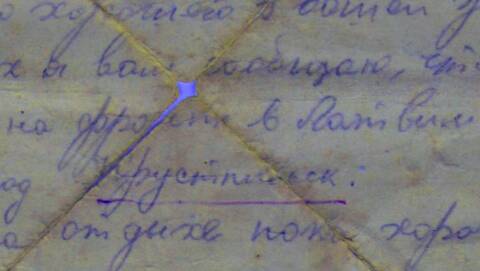 о хорошего в вашей
х я вам сообщаю, что
на фронте в Латвии
од Крустпилск.
а отдыхе пока хоро